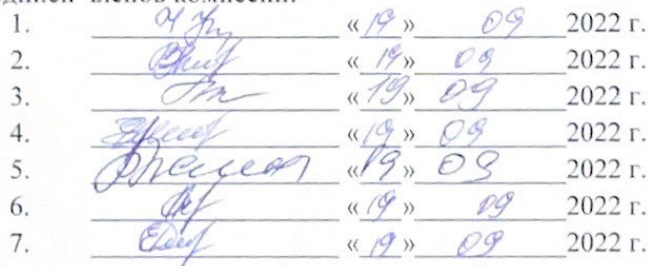 членов комиссии:
1. «19» 09 2022 г.
2. «19» 09 2022 г.
3. «19» 09 2022 г.
4. «19» 09 2022 г.
5. «19» 09 2022 г.
6. «19» 09 2022 г.
7. «19» 09 2022 г.